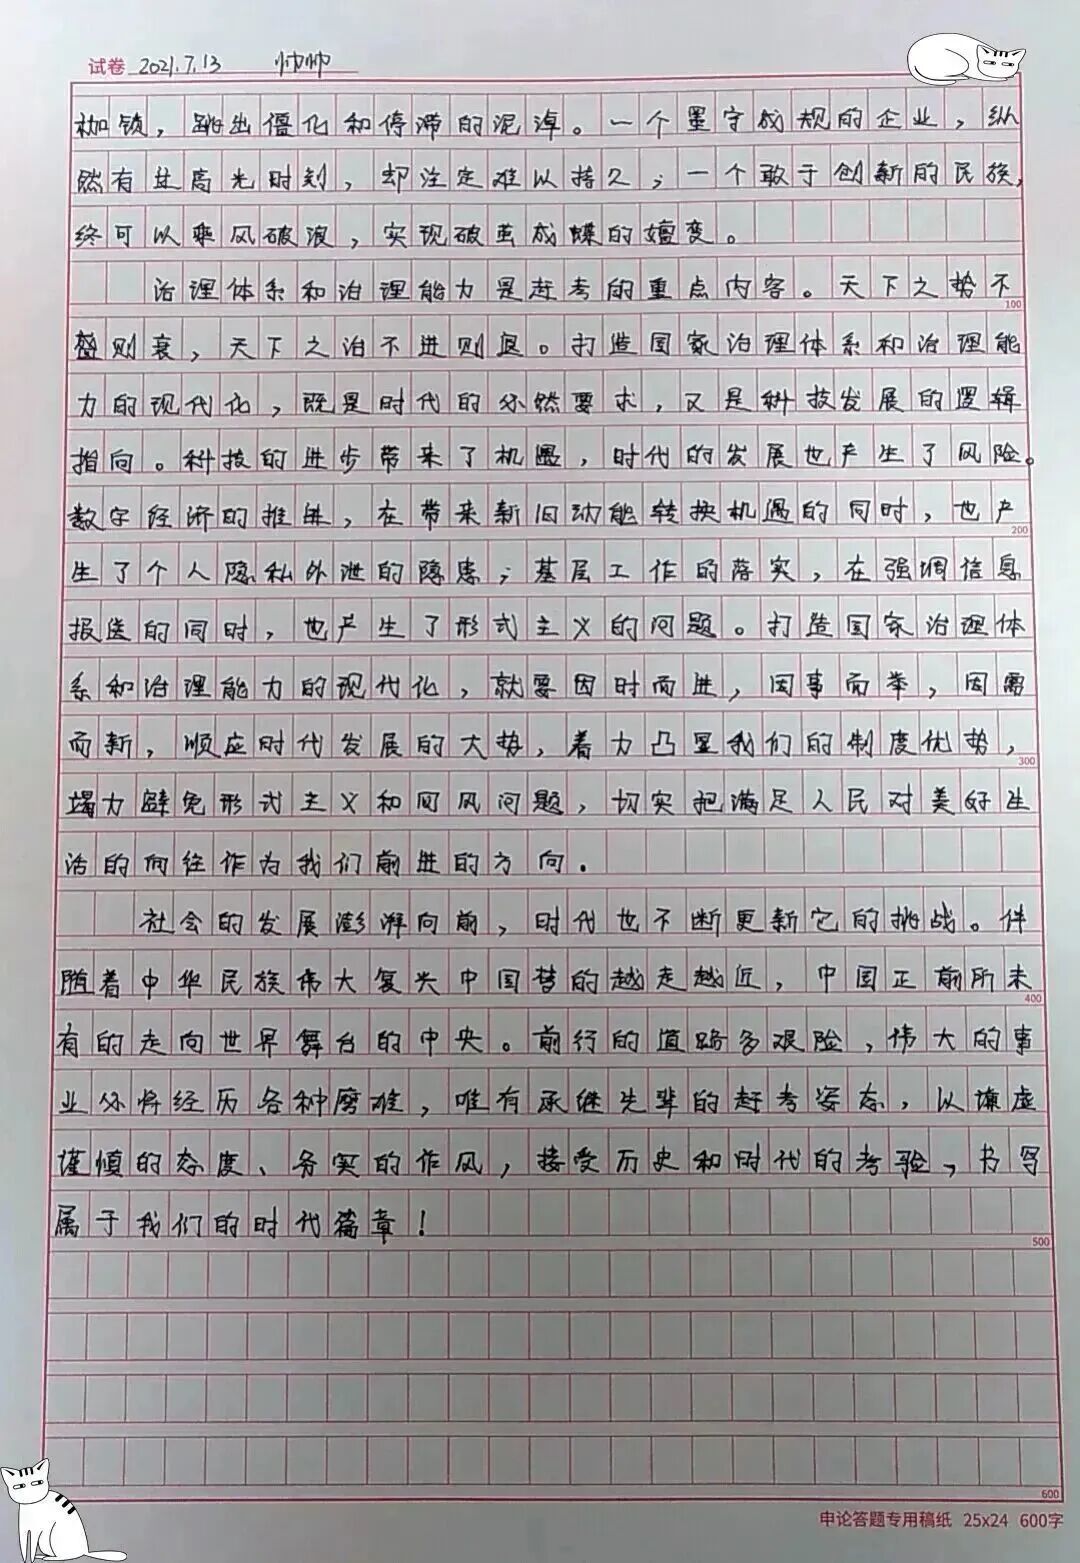 试卷 2021.7.13 帅帅
枷锁，跳出僵化和停滞的泥淖。一个墨守成规的企业，纵
然有些高光时刻，却注定难以持久；一个敢于创新的民族，
终可以乘风破浪，实现破茧成蝶的嬗变。
治理体系和治理能力是赶考的重点内容。天下之势不
盛则衰，天下之治不进则退。打造国家治理体系和治理能
力的现代化，既是时代的必然要求，又是科技发展的逻辑
指向。科技的进步带来了机遇，时代的发展也产生了风险。
数字经济的推进，在带来新旧动能转换机遇的同时，也产
生了个人隐私外泄的隐患；基层工作的落实，在强调信息
报送的同时，也产生了形式主义的问题。打造国家治理体
系和治理能力的现代化，就要因时而进，因事而举，因需
而新，顺应时代发展的大势，着力凸显我们的制度优势，
竭力避免形式主义和网风问题，切实把满足人民对美好生
活的向往作为我们前进的方向.
社会的发展澎湃向前，时代也不断更新它的挑战。伴
随着中华民族伟大复兴中国梦的越走越近，中国正前所未
有的走向世界舞台的中央。前行的道路多艰险，伟大的事
业必将经历各种磨难，唯有承继先辈的赶考姿态，以谦虚
谨慎的态度、务实的作风，接受历史和时代的考验，书写
属于我们的时代篇章！
100
200
300
400
500
600
申论答题专用稿纸 25x24 600字